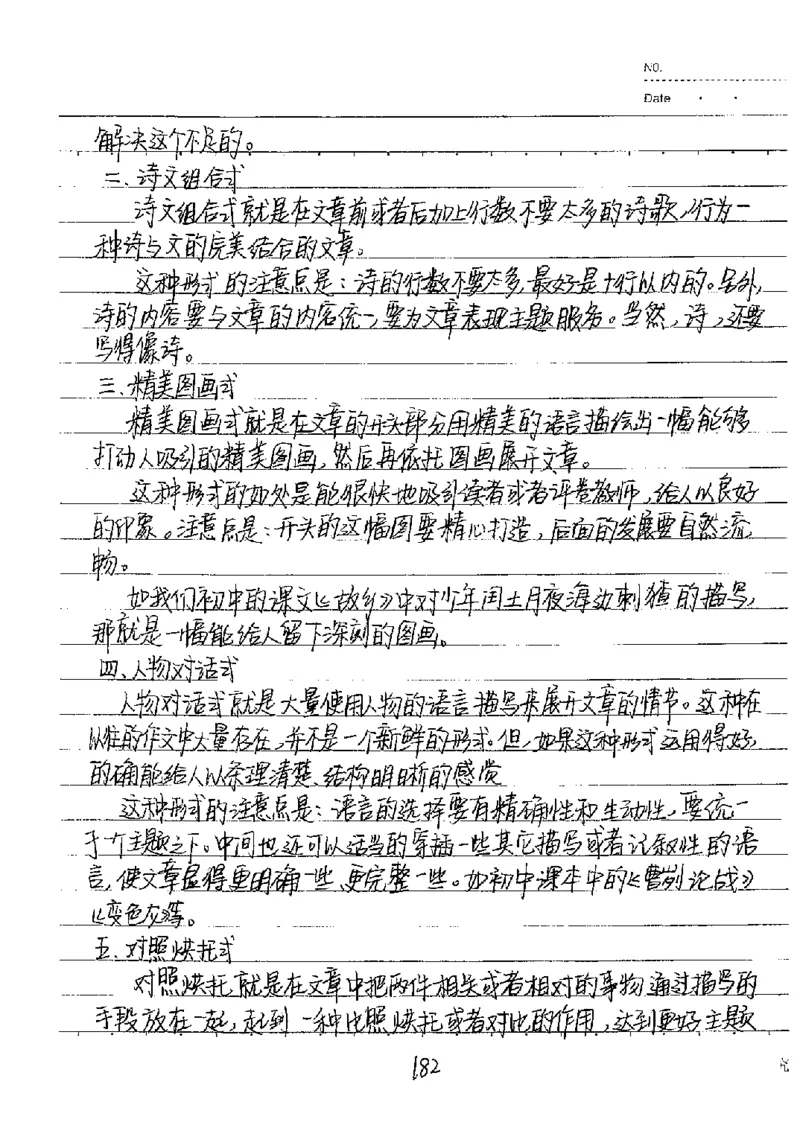 NO.
Date
解决这个不足的。
二、诗文组合式
诗文组合式就是在文章前或者后加上行数不要太多的诗歌,行为一
种诗与文的完美结合的文章。
这种形式的注意点是:诗的行数不要太多,最好是十行以内的。另外,
诗的内容要与文章的内容统一,要为文章表现主题服务。当然,诗,还要
写得像诗。
三、精美图画式
精美图画式就是在文章的开头部分用精美的语言描绘出一幅能够
打动人吸引的精美图画,然后再依托图画展开文章。
这种形式的好处是能很快地吸引读者或者评卷教师,给人以良好
的印象。注意点是:开头的这幅图要精心打造,后面的发展要自然流
畅。
如我们初中的课文《故乡》中对少年闰土月夜海边刺猹的描写,
那就是一幅能给人留下深刻的图画。
四、人物对话式
人物对话式就是大量使用人物的语言描写来展开文章的情节。这种在
以往的作文中大量存在,并不是一个新鲜的形式。但,如果这种形式运用得好,
的确能给人以条理清楚、结构明晰的感觉
这种形式的注意点是:语言的选择要有精确性和生动性,要统一
于个主题之下。中间也还可以适当的穿插一些其它描写或者记叙性的语
言,使文章显得更明确一些、更完整一些。如初中课本中的《曹刿论战》
《变色龙》等。
五、对照烘托式
对照烘托就是在文章中把两件相关或者相对的事物通过描写的
手段放在一起,起到一种比照烘托或者对比的作用,达到更好主题
182